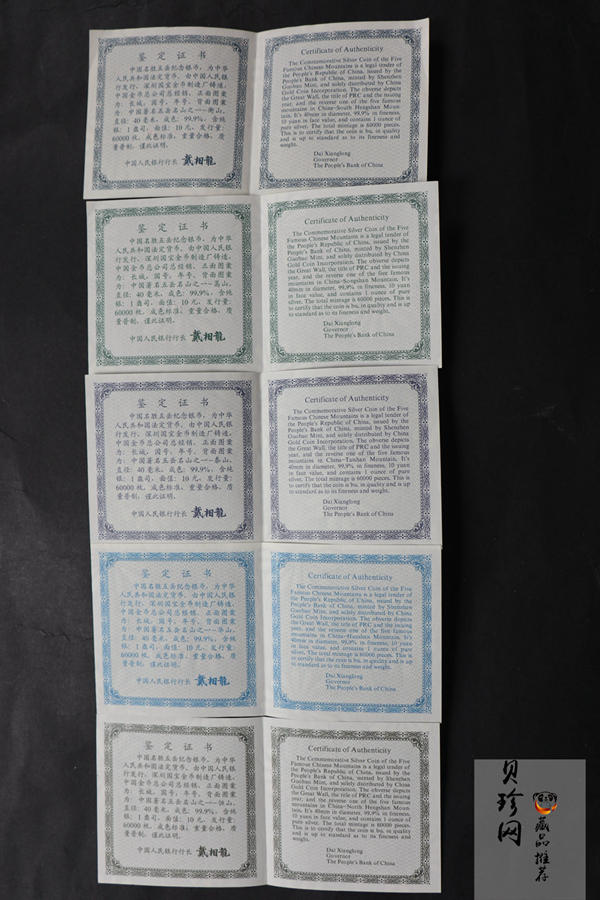 鉴定证书
中国名胜五岳纪念银币，为中华
人民共和国法定货币，由中国人民银
行发行，深圳国宝金币制造厂铸造，
中国金币总公司总经销。正面图案
为：长城，国号，年号，背面图案为：
中国著名五岳名山之一--衡山。
直径：40毫米，成色：99.9%，含纯
银：1盎司，面值：10元，发行量：
60000枚，成色标准，重量合格，质
量普制，谨此证明。
中国人民银行行长 戴相龙
Certificate of Authenticity
The Commemorative Silver Coin of the Five
Famous Chinese Mountains is a legal tender of
the People's Republic of China, issued by the
People's Bank of China, minted by Shenzhen
Guobao Mint, and solely distributed by China
Gold Coin Incorporation. The obverse depicts
the Great Wall, the title of PRC and the issuing
year, and the reverse one of the five famous
mountains in China-South Hengshan Moun-
tain. It's 40mm in diameter, 99.9% in fineness,
10 yuan in face value, and contains 1 ounce of
pure silver. The total mintage is 60000 pieces.
This is to certify that the coin is bu, in quality
and is up to standard as to its fineness and
weight.
Dai Xianglong
Governor
The People's Bank of China
鉴定证书
中国名胜五岳纪念银币，为中华
人民共和国法定货币，由中国人民银
行发行，深圳国宝金币制造厂铸造，
中国金币总公司总经销。正面图案
为：长城，国号，年号，背面图案为：
中国著名五岳名山之一--嵩山。
直径：40毫米，成色：99.9%，含纯
银：1盎司，面值：10元，发行量：
60000枚，成色标准，重量合格，质
量普制，谨此证明。
中国人民银行行长 戴相龙
Certificate of Authenticity
The Commemorative Silver Coin of the Five
Famous Chinese Mountains is a legal tender of
the People's Republic of China, issued by the
People's Bank of China, minted by Shenzhen
Guobao Mint, and solely distributed by China
Gold Coin Incorporation. The obverse depicts
the Great Wall, the title of PRC and the issuing
year, and the reverse one of the five famous
mountains in China-Songshan Mountain. It's
40mm in diameter, 99.9% in fineness, 10 yuan
in face value, and contains 1 ounce of pure
silver. The total mintage is 60000 pieces. This is
to certify that the coin is bu, in quality and is up
to standard as to its fineness and weight.
Dai Xianglong
Governor
The People's Bank of China
鉴定证书
中国名胜五岳纪念银币，为中华
人民共和国法定货币，由中国人民银
行发行，深圳国宝金币制造厂铸造，
中国金币总公司总经销。正面图案
为：长城，国号，年号，背面图案为：
中国著名五岳名山之一--泰山。
直径：40毫米，成色：99.9%，含纯
银：1盎司，面值：10元，发行量：
60000枚，成色标准，重量合格，质
量普制，谨此证明。
中国人民银行行长 戴相龙
Certificate of Authenticity
The Commemorative Silver Coin of the Five
Famous Chinese Mountains is a legal tender of
the People's Republic of China, issued by the
People's Bank of China, minted by Shenzhen
Guobao Mint, and solely distributed by China
Gold Coin Incorporation. The obverse depicts
the Great Wall, the title of PRC and the issuing
year, and the reverse one of the five famous
mountains in China-Taishan Mountain. It's
40mm in diameter, 99.9% in fineness, 10 yuan
in face value, and contains 1 ounce of pure
silver. The total mintage is 60000 pieces. This is
to certify that the coin is bu, in quality and is up
to standard as to its fineness and weight.
Dai Xianglong
Governor
The People's Bank of China
鉴定证书
中国名胜五岳纪念银币，为中华
人民共和国法定货币，由中国人民银
行发行，深圳国宝金币制造厂铸造，
中国金币总公司总经销。正面图案
为：长城，国号，年号，背面图案为：
中国著名五岳名山之一--华山。
直径：40毫米，成色：99.9%，含纯
银：1盎司，面值：10元，发行量：
60000枚，成色标准，重量合格，质
量普制，谨此证明。
中国人民银行行长 戴相龙
Certificate of Authenticity
The Commemorative Silver Coin of the Five
Famous Chinese Mountains is a legal tender of
the People's Republic of China, issued by the
People's Bank of China, minted by Shenzhen
Guobao Mint, and solely distributed by China
Gold Coin Incorporation. The obverse depicts
the Great Wall, the title of PRC and the issuing
year, and the reverse one of the five famous
mountains in China-Huashan Mountain. It's
40mm in diameter, 99.9% in fineness, 10 yuan
in face value, and contains 1 ounce of pure
silver. The total mintage is 60000 pieces. This is
to certify that the coin is bu, in quality and is up
to standard as to its fineness and weight.
Dai Xianglong
Governor
The People's Bank of China
鉴定证书
中国名胜五岳纪念银币，为中华
人民共和国法定货币，由中国人民银
行发行，深圳国宝金币制造厂铸造，
中国金币总公司总经销。正面图案
为：长城，国号，年号，背面图案为：
中国著名五岳名山之一--恒山。
直径：40毫米，成色：99.9%，含纯
银：1盎司，面值：10元，发行量：
60000枚，成色标准，重量合格，质
量普制，谨此证明。
中国人民银行行长 戴相龙
Certificate of Authenticity
The Commemorative Silver Coin of the Five
Famous Chinese Mountains is a legal tender of
the People's Republic of China, issued by the
People's Bank of China, minted by Shenzhen
Guobao Mint, and solely distributed by China
Gold Coin Incorporation. The obverse depicts
the Great Wall, the title of PRC and the issuing
year, and the reverse one of the five famous
mountains in China-North Hengshan Moun-
tain. It's 40mm in diameter, 99.9% in fineness,
10 yuan in face value, and contains 1 ounce of
pure silver. The total mintage is 60000 pieces.
This is to certify that the coin is bu, in quality
and is up to standard as to its fineness and
weight.
Dai Xianglong
Governor
The People's Bank of China
贝珍网
藏品推荐